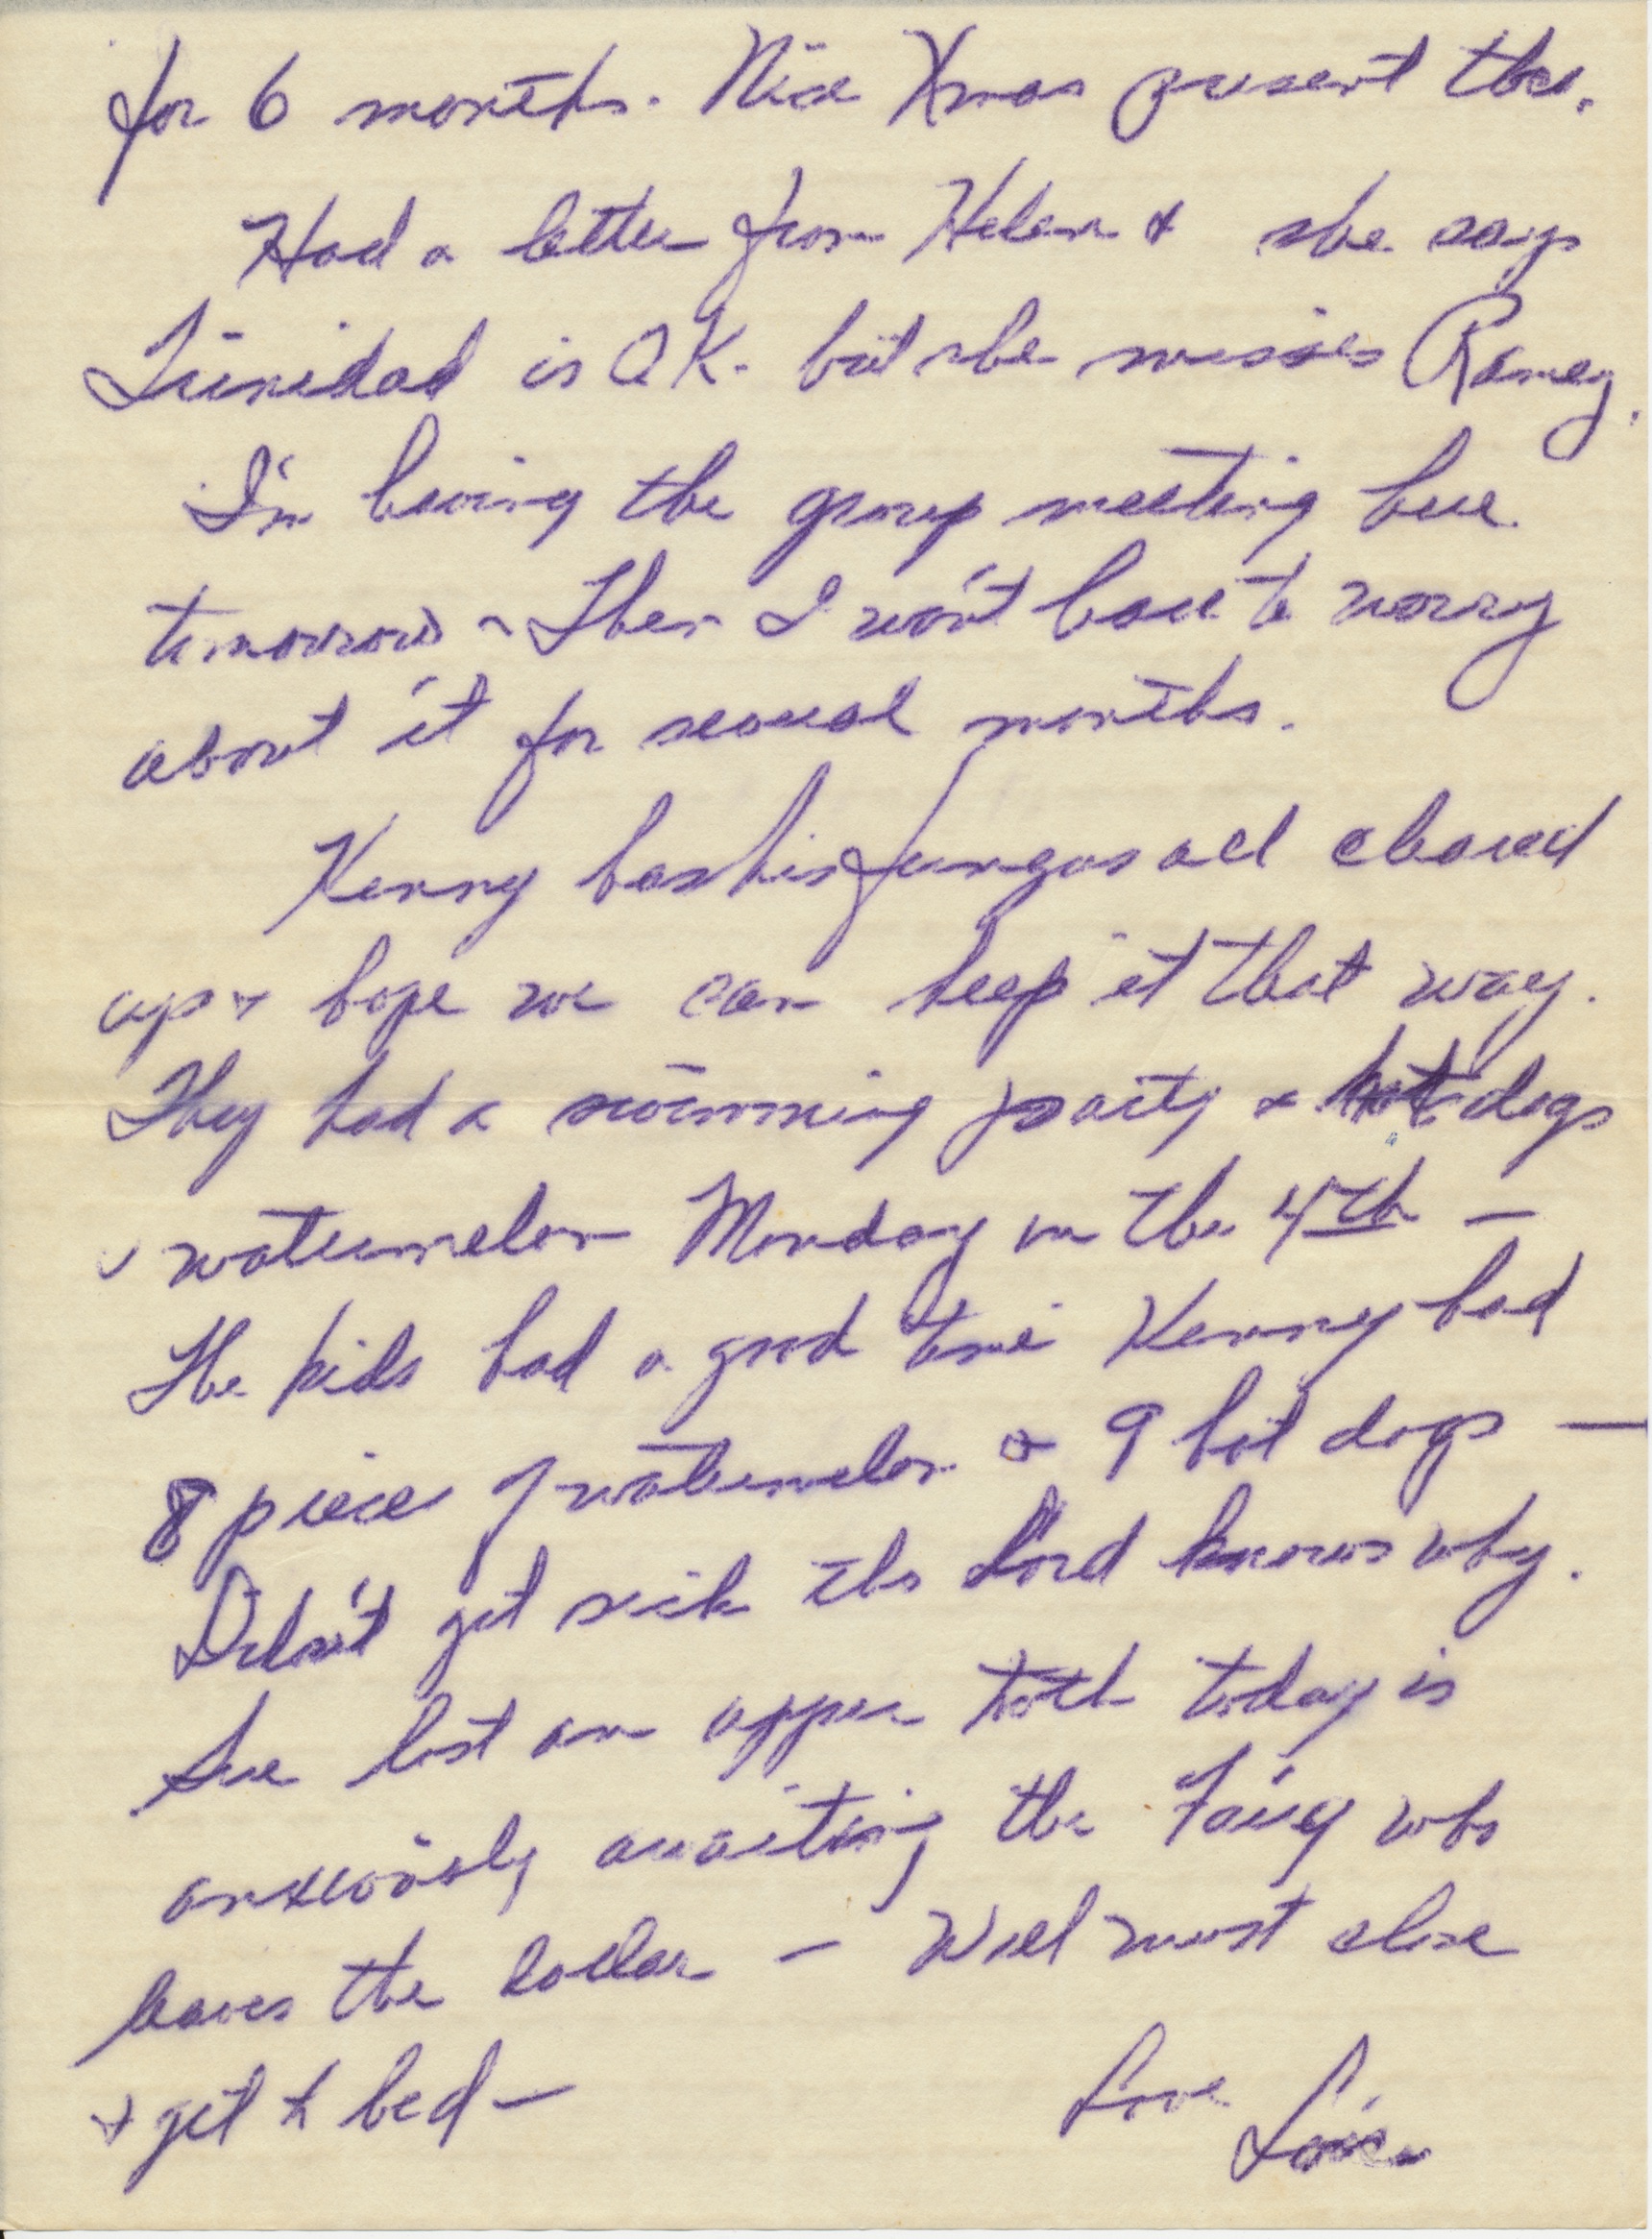 for 6 months. Nice Xmas present tho.
Had a letter from Helen & she says
Trinidad is O.K. but she misses Ramey.
I'm having the group meeting here
tomorrow - Then I won't have to worry
about it for several months.
Kenny has his fungus all cleared
up & hope we can keep it that way.
They had a swimming party & hot dogs
& watermelon Monday on the 4th —
The kids had a good time Kenny had
8 pieces of watermelon & 9 hot dogs —
Didn't get sick tho Lord knows why.
Sue lost an upper tooth today is
anxiously awaiting the Fairy who
leaves the dollar — Well must close
& get to bed —
Love
Lois